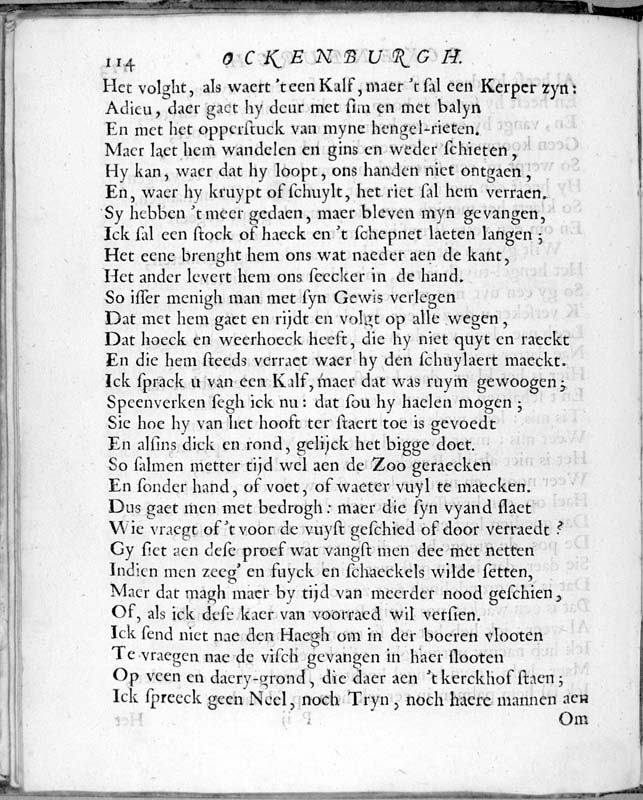 114 OCKENBURGH.
Het volght, als waert 't een Kalf, maer 't sal een Kerper zyn:
Adieu, daer gaet hy deur met sim en met balyn
En met het opperstuck van myne hengel-rieten.
Maer laet hem wandelen en gins en weder schieten,
Hy kan, waer dat hy loopt, ons handen niet ontgaen,
En, waer hy kruypt of schuylt, het riet sal hem verraen.
Sy hebben 't meer gedaen, maer bleven myn gevangen,
Ick sal een stock of haeck en 't schepnet laeten langen;
Het eene brenght hem ons wat naeder aen de kant,
Het ander levert hem ons seecker in de hand.
So isser menigh man met syn Gewis verlegen
Dat met hem gaet en rijdt en volgt op alle wegen,
Dat hoeck en weerhoeck heeft, die hy niet quyt en raeckt
En die hem steeds verraet waer hy den schuylaert maeckt.
Ick sprack u van een Kalf, maer dat was ruym gewoogen;
Speenverken segh ick nu: dat sou hy haelen mogen;
Sie hoe hy van het hooft ter staert toe is gevoedt
En alsins dick en rond, gelijck het bigge doet.
So salmen metter tijd wel aen de Zoo geraecken
En sonder hand, of voet, of waeter vuyl te maecken.
Dus gaet men met bedrogh: maer die syn vyand slaet
Wie vraegt of 't voor de vuyst geschied of door verraedt?
Gy siet aen dese proef wat vangst men dee met netten
Indien men zeeg' en fuyck en schaeckels wilde setten,
Maer dat magh maer by tijd van meerder nood geschien,
Of, als ick dese kaer van voorraed wil versien.
Ick send niet nae den Haegh om in der boeren vlooten
Te vraegen nae de visch gevangen in haer slooten
Op veen en daery-grond, die daer aen 't kerckhof staen;
Ick spreeck geen Neel, noch Tryn, noch haere mannen aen
Om